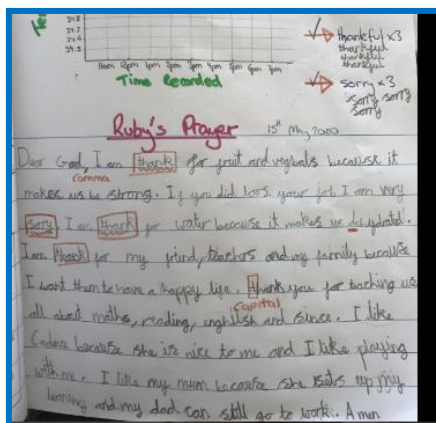 34.8
34.7
34.6
34.5
11am 12pm 1pm 2pm 3pm 4pm 5pm 6pm 7pm
Time Recorded
thankful x3
thankful
thankful
thankful
sorry x3
sorry sorry
sorry
Ruby's Prayer 15th May 2020
Dear God, I am thank for fruit and vegbals because it
comma
makes us be strong. If you did loos your job I am very
sory. I am thank for water because it makes us dehydrated.
I am thank for my friend, teachers and my family because
I want them to have a happy life. thank you for teaching us
capital
all about maths, reading, and . I like
because she is nice to me and I like playing
with me. I like my mum because she up my
and my dad can still go to work. Amen